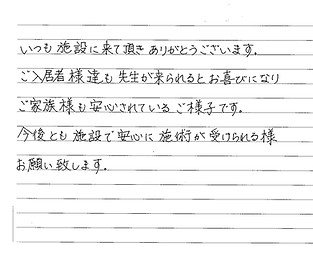 いつも施設に来て頂きありがとうございます.
ご入居者様達も先生が来られるとお喜びになり
ご家族様も安心されているご様子です。
今後とも施設で安心に施術が受けられる様
お願い致します.